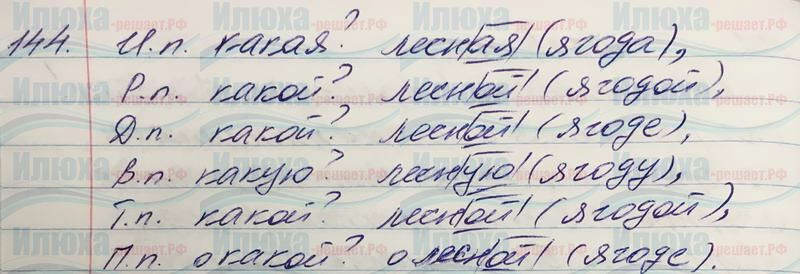 144. И.п. какая? лесная (ягода),
Р.п. какой? лесной (ягодой),
Д.п. какой? лесной (ягоде),
В.п. какую? лесную (ягоду),
Т.п. какой? лесной (ягодой),
П.п. о какой? о лесной (ягоде)